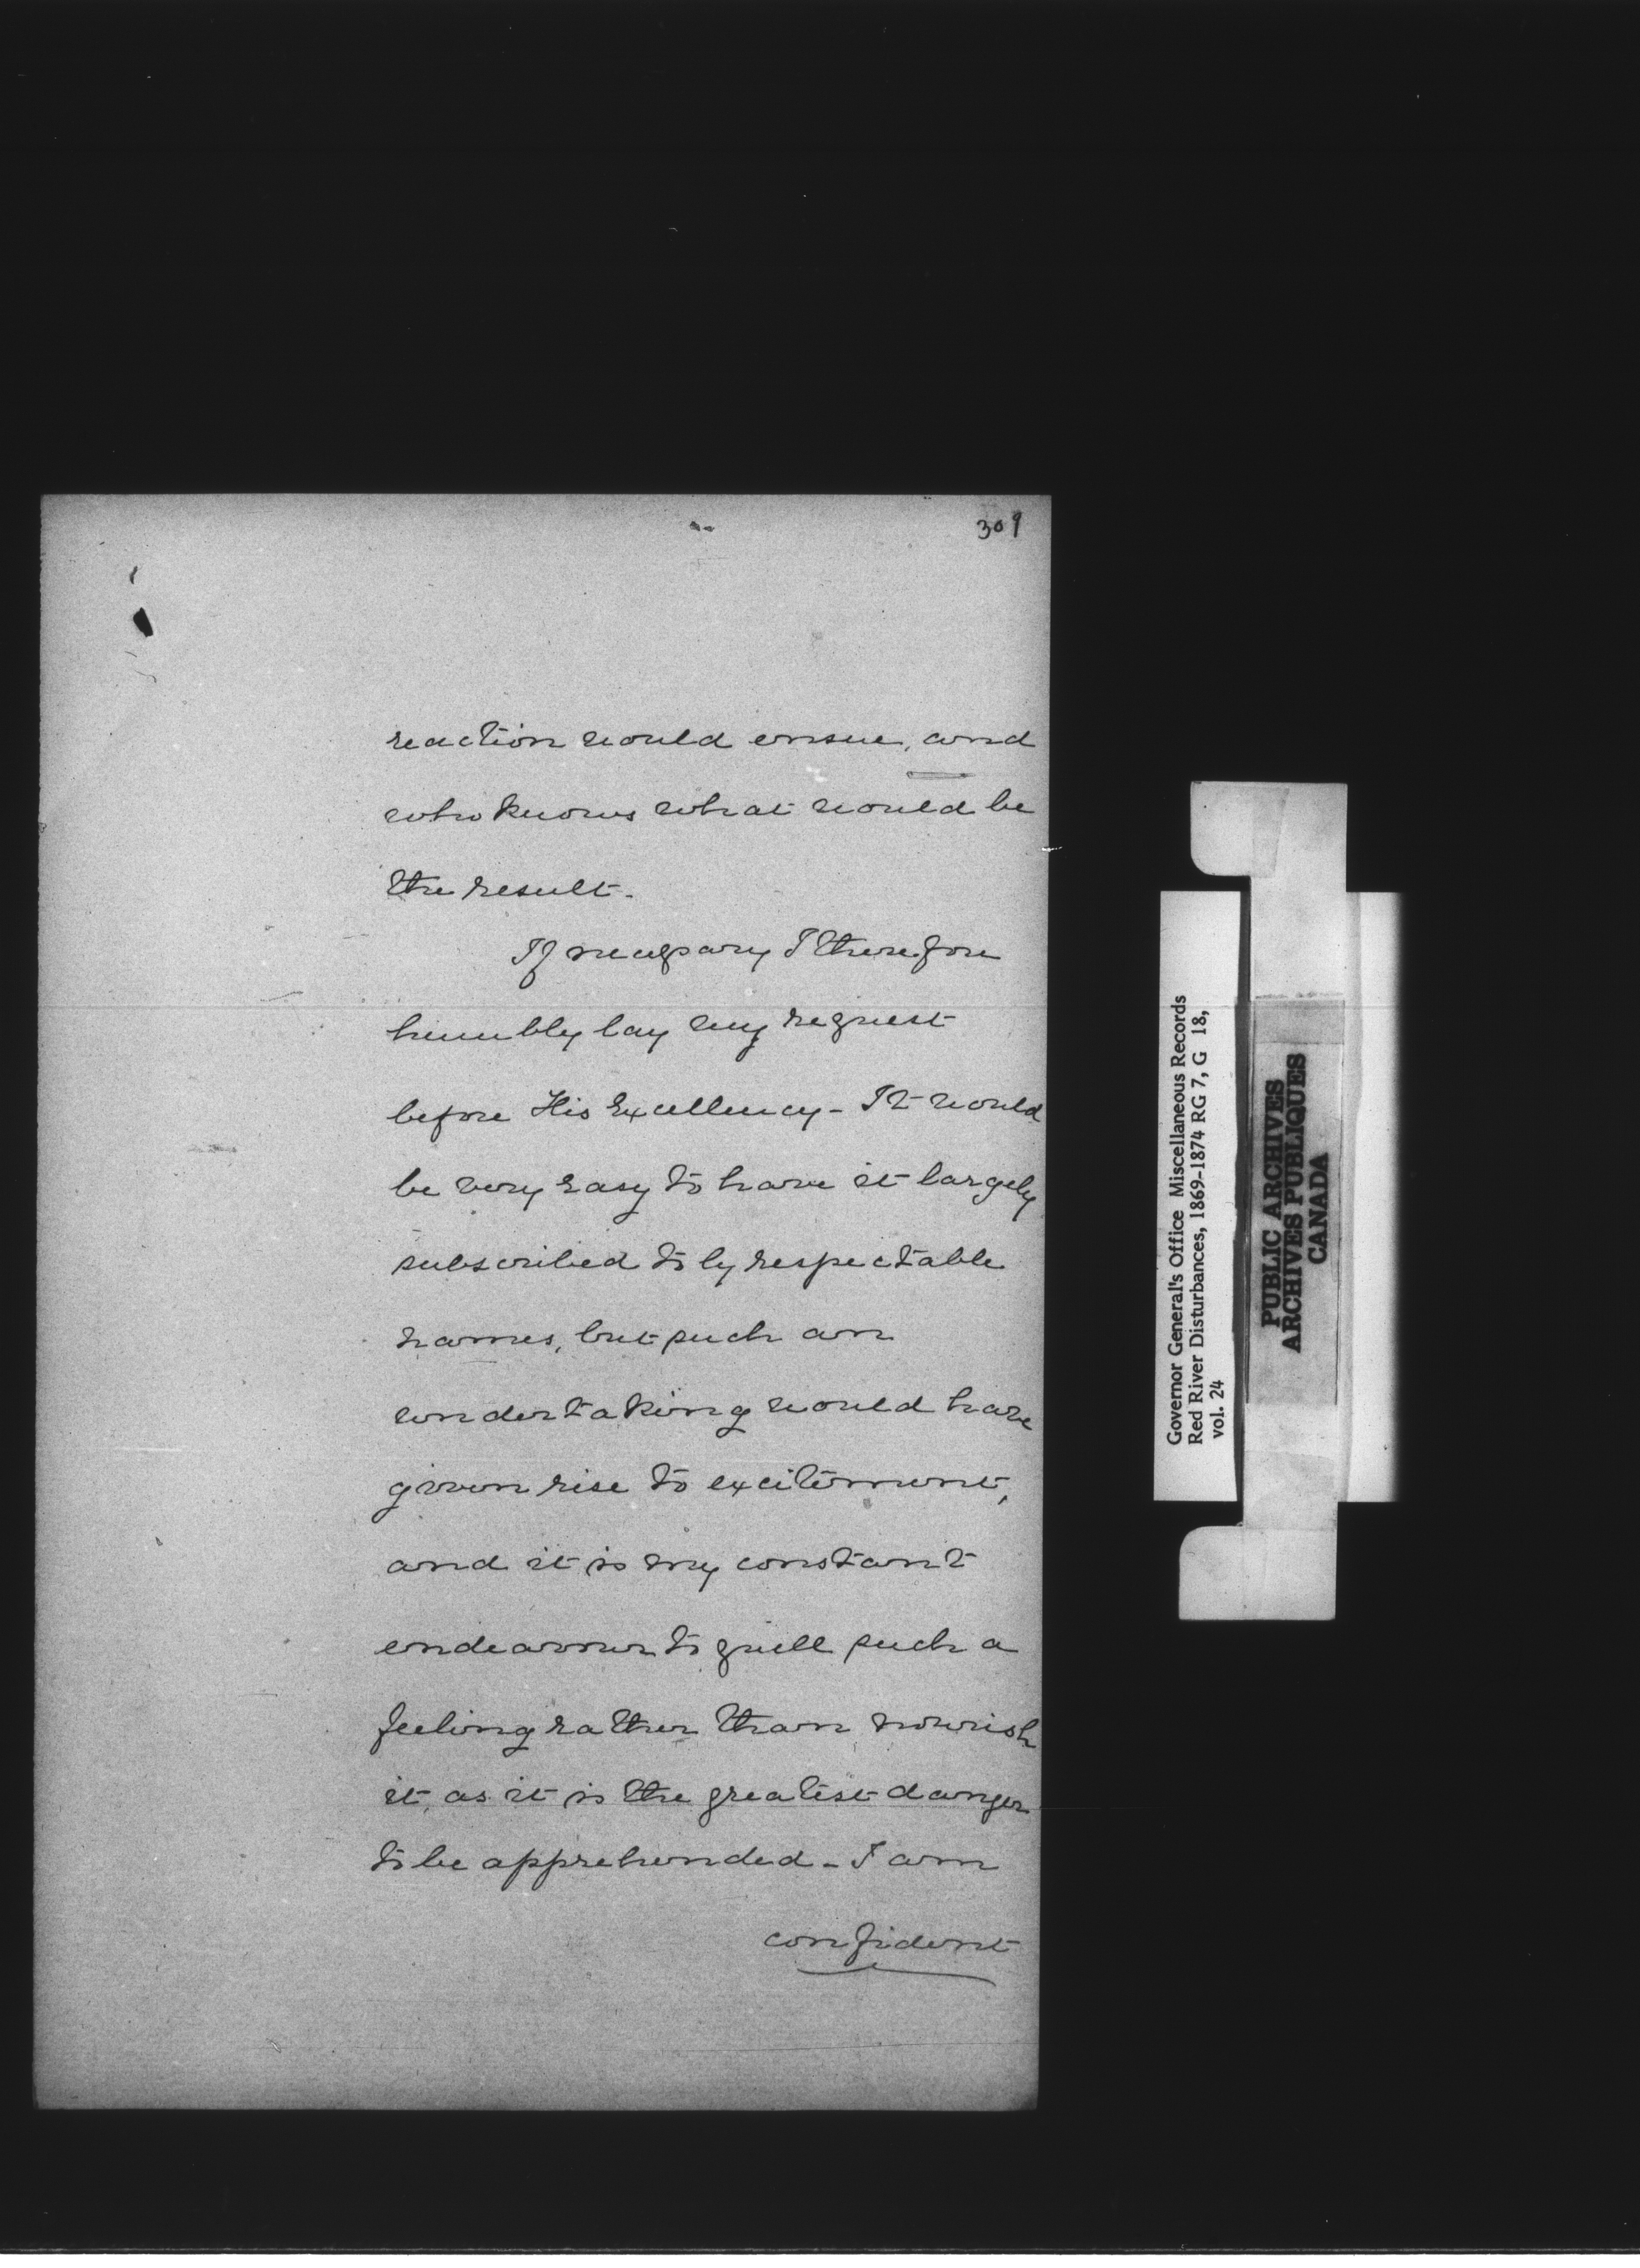 309
reaction would ensue, and
who knows what would be
the result.
If necessary I therefore
humbly lay my request
before His Excellency - It would
be very easy to have it largely
subscribed to by respectable
names, but such an
undertaking would have
given rise to excitement,
and it is my constant
endeavour to quell such a
feeling rather than nourish
it, as it is the greatest danger
to be apprehended - I am
confident
Governor General's Office Miscellaneous Records
Red River Disturbances, 1869-1874 RG 7, G 18,
vol. 24
PUBLIC ARCHIVES
ARCHIVES PUBLIQUES
CANADA